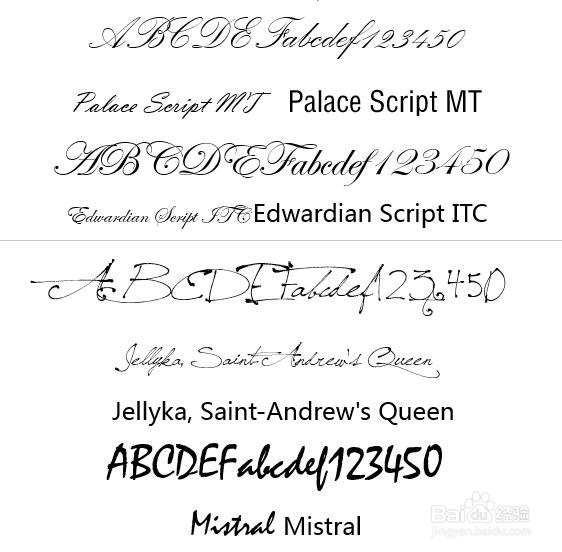 ABCDEFabcdef123450
Palace Script MT Palace Script MT
ABCDEFabcdef123450
Edwardian Script ITC Edwardian Script ITC
ABCDEFabcdef123450
Jellyka, Saint-Andrew's Queen
Jellyka, Saint-Andrew's Queen
ABCDEFabcdef123450
Mistral Mistral
Baidu 经验
jingyan.baidu.com